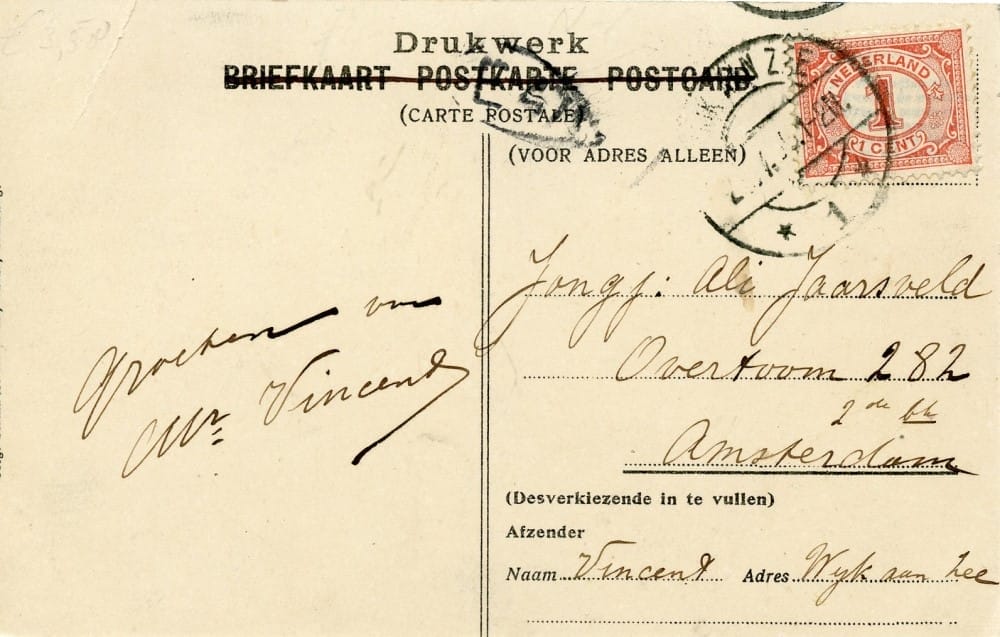 Drukwerk
BRIEFKAART POSTKARTE POSTCARD.
(CARTE POSTALE)
(VOOR ADRES ALLEEN)
NEDERLAND
1
1 CENT
1
Jongj: Ali Jaarsveld
Overtoom 282
2de
Amsterdam
Groeten van
Mr Vincent
(Desverkiezende in te vullen)
Afzender
Naam Vincent Adres Wyk aan Zee